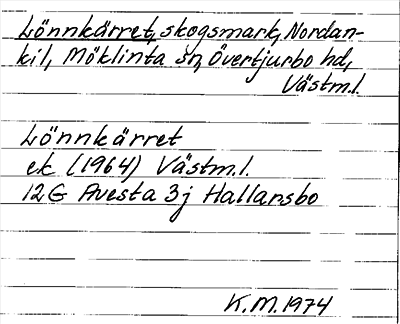 Lönnkärret, skogsmark, Nordan-
kil, Möklinta sn, Övertjurbo hd,
Västm.l.
Lönnkärret
ek (1964) Västm.l.
12G Avesta 3j Hallarsbo
K.M. 1974